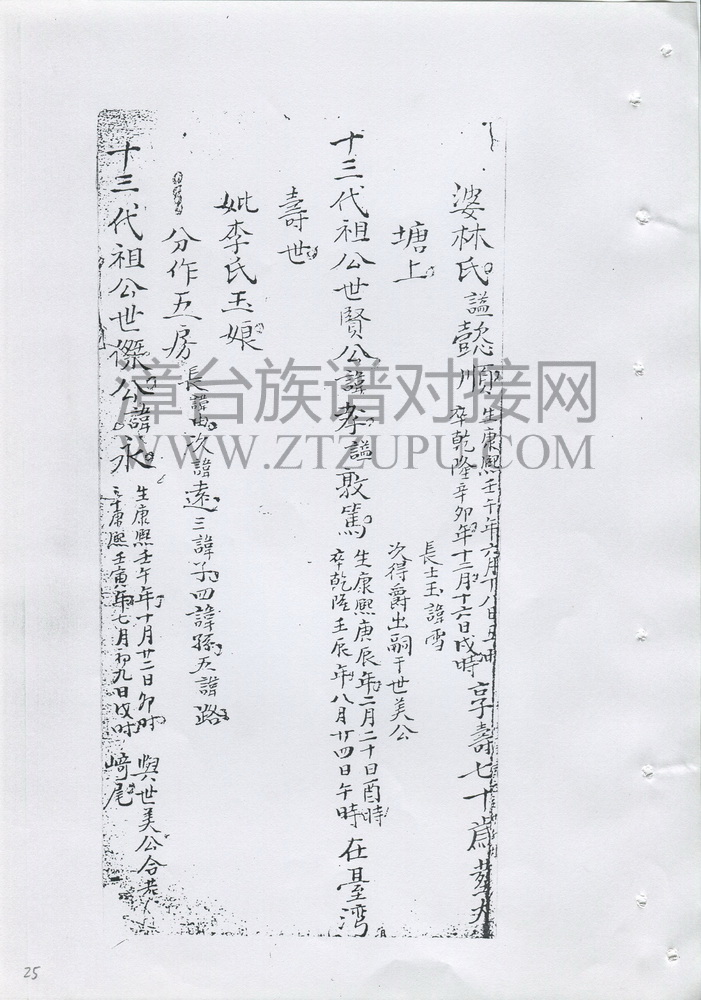 婆林氏謚懿順生康熙壬午年六月十八日五時
卒乾隆辛卯年十二月十六日戌時
享壽七十歲葬大
塘上
長士玉諱雪
次得爵出嗣于世美公
十三代祖公世賢公諱孝謚敦篤
生康熙庚辰年二月二十日酉時
卒乾隆壬辰年八月廿四日午時
在臺灣
壽世
妣李氏玉娘
分作五房
長諱由次諱遠三諱子四諱孫五諱路
十三代祖公世傑公諱永
生康熙壬午年十月廿二日卯时
卒康熙壬寅年七月初九日戌时
與世美公合葬
崎尾
漳台族谱对接网
WWW.ZTZUPU.COM
25